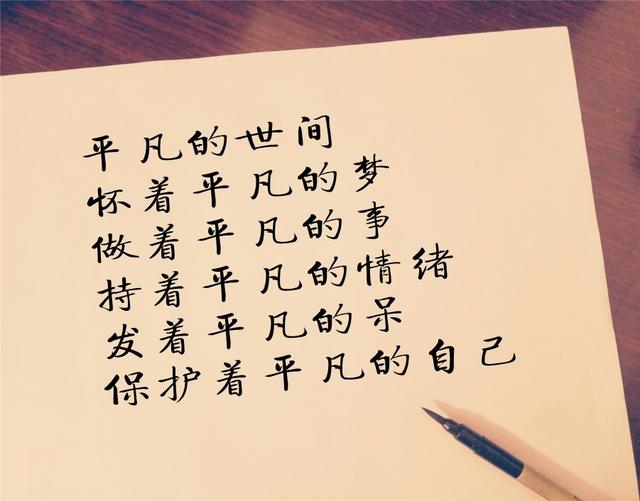 平凡的世间
怀着平凡的梦
做着平凡的事
持着平凡的情绪
发着平凡的呆
保护着平凡的自己